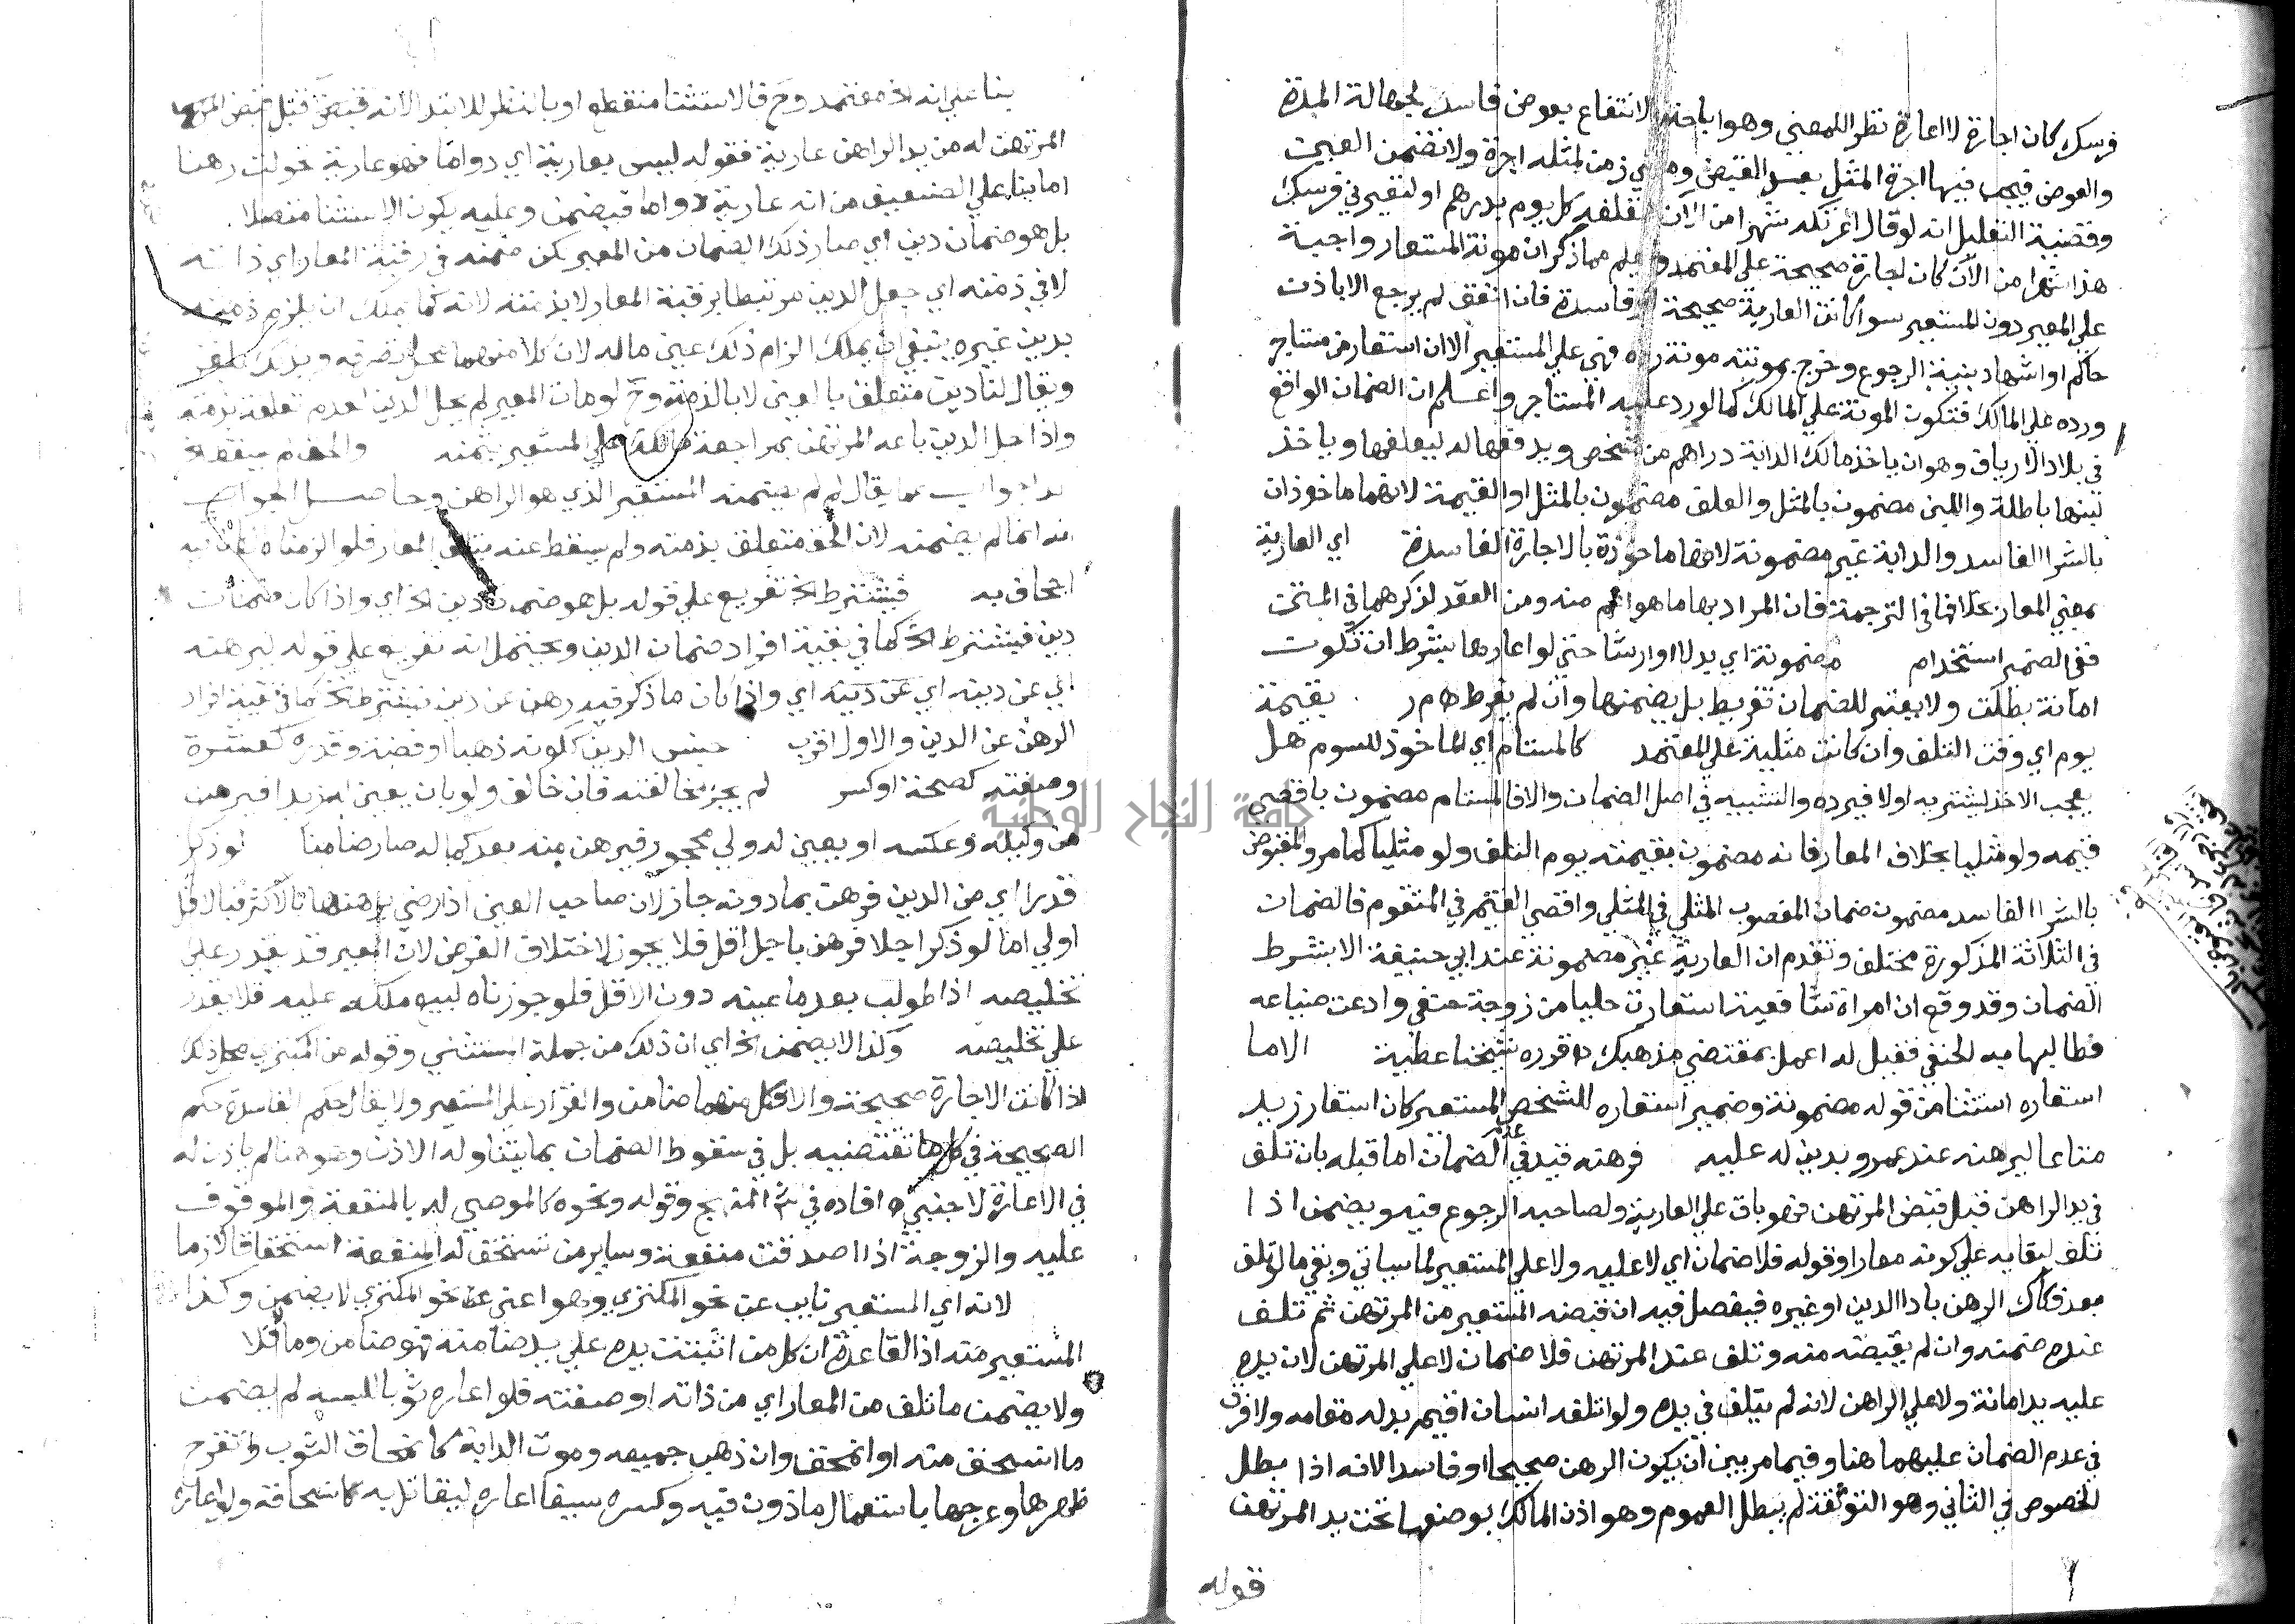 فرسك كان اجارة لا اعارة نظرا للمعني وهو اباحة الانتفاع بعوض فاسد لجهالة المدة
والعوض فيجب فيها اجرة المثل بعد القبض ومضي زمن لمثله اجرة ولا تضمن العين
وقضية التعليل انه لو قال اعرتكه شهرا من الآن لتعلفه كل يوم بدرهم او لتعيرني فرسك
هذا شهرا من الآن كان اجارة صحيحة علي المعتمد وعلم مما ذكر ان مونة المستعار واجبة
علي المعير دون المستعير سوا كانت العارية صحيحة او فاسدة فان انفق لم يرجع الا باذن
حاكم او اشهاد بنية الرجوع وخرج بمونته مونة رده فهي علي المستعير الا ان استعار من مستاجر
ورده علي المالك فتكون المونة علي المالك كما لو رد عليه المستاجر واعلم ان الضمان الواقع
في بلاد الارياف وهو ان ياخذ مالك الدابة دراهم من شخص ويدفعها له ليعلفها وياخذ
لبنها باطلة واللبن مضمون بالمثل والعلف مضمون بالمثل او القيمة لانهما ماخوذان
بالشرا الفاسد والدابة غير مضمونة لانها ماخوذة بالاجارة الفاسدة اي العارية
بمعني المعار بخلافها في الترجمة فان المراد بها ما هو اعم منه ومن العقد لذكرهما في المتن
ففي الضمير استخدام مضمونة اي بدلا او ارشا حتي لو اعارها بشرط ان تكون
امانة بطلت ولا يعتبر للضمان تفريط بل يضمنها وان لم يفرط م ر بقيمة
يوم اي وقت التلف وان كانت مثلية علي المعتمد كالمستام اي الماخوذ للسوم هل
يعجب الاخذ ليشتريه اولا فيرده والتشبيه في اصل الضمان والا فالمستام مضمون باقصي
قيمه ولو مثليا بخلاف المعار فانه مضمون بقيمته يوم التلف ولو مثليا كما مر والمقبوض
بالشرا الفاسد مضمون ضمان المغصوب المثلي في المثلي واقصي القيم في المتقوم فالضمان
في الثلاثة المذكورة مختلف وتقدم ان العارية غير مضمونة عند ابي حنيفة الا بشرط
الضمان وقد وقع ان امراة شافعية استعارت حليا من زوجة حنفي وادعت ضياعه
فطالبها به الحنفي فقيل له اعمل بمقتضي مذهبك قرره شيخنا عطية الا ما
استعاره استثنا من قوله مضمونة وضمير استعاره للشخص المستعير كان استعار زيد
متاعا ليرهنه عند عمرو بدين له عليه فرهنه قيد في عدم الضمان اما قبله بان تلف
في يد الراهن قبل قبض المرتهن فهو باق علي العارية ولصاحبه الرجوع فيه ويضمن اذا
تلف لبقايه علي كونه معارا وقوله فلا ضمان اي لا عليه ولا علي المستعير لما سياتي وبقي ما لو تلف
بعد فكاك الرهن بادا الدين او غيره فيفصل فيه ان قبضه المستعير من المرتهن ثم تلف
عنده ضمنه وان لم يقبضه منه وتلف عند المرتهن فلا ضمان لا علي المرتهن لان يده
عليه يد امانة ولا علي الراهن لانه لم يتلف في يده ولو اتلفه انسان اقيم بدله مقامه ولا فرق
في عدم الضمان عليهما هنا وفيما مر بين ان يكون الرهن صحيحا او فاسدا لانه اذا بطل
الخصوص في الثاني وهو التوثقة لم يبطل العموم وهو اذن المالك بوضعها تحت يد المرتهن
قوله
بنا علي انه معتمد وح فالاستثنا منقطع او بالنظر للابتدا لانه قبضه قبل قبض المرتهن
المرتهن له من يد الراهن عارية فقوله ليس بعارية اي دواما فهو عارية تحولت رهنا
اما بنا علي الضعيف من انه عارية دواما فيضمن وعليه يكون الاستثنا متصلا
بل هو ضمان دين اي صار ذلك الضمان من المعير كمن ضمنه في رقبة المعار اي ذاته
لا في ذمته اي جعل الدين مرتبطا برقبة المعار لا بذمته لانه كما يملك ان يلزم ذمته
بدين غيره ينبغي ان يملك الزام ذلك عين ماله لان كلا منهما محل تصرفه وبذلك يلغز
ويقال لنا دين متعلق بالعين لا بالذمة وح لو مات المعير لم يحل الدين لعدم تعلقه بذمته
واذا حل الدين باعه المرتهن بمراجعة مالكه علي المستعير بثمنه
جواب عما يقال لم لم يضمنه المستعير الذي هو الراهن وحاصل الجواب
انه انما لم يضمنه لان الحق متعلق بذمته ولم يسقط عنه بتلف المعار فلو الزمناه لكان فيه
اجحاف به فيشترط الخ تفريع علي قوله بل هو ضمان دين الخ اي واذا كان ضمان
دين فيشترط الخ كما في بقية افراد ضمان الدين ويحتمل انه تفريع علي قوله ليرهنه
اي عن دينه اي واذا كان ما ذكر فيه رهن عن دين فيشترط الخ كما في بقية افراد
الرهن عن الدين والاول اقرب جنس الدين ككونه ذهبا او فضة وقدره كعشرة
وصفته كصحة او كسر لم يجز مخالفته فان خالف ولو بان يعين له زيدا فيرهن
من وكيله وعكسه او يعين له ولي محجور فيرهن منه بعد كماله صار ضامنا لو ذكر
قدرا اي من الدين فرهن بما دونه جاز لان صاحب العين اذا رضي برهنها بالاكثر فبالاقل
اولي اما لو ذكر اجلا فرهن باجل اقل فلا يجوز لاختلاف الغرض لان المعير قد يقدر علي
تخليصه اذا طولب بعد ما عينه دون الاقل فلو جوزناه لبيع ملكه عليه فلا يقدر
علي تخليصه وكذا لا يضمن الخ اي ان ذلك من جملة المستثني وقوله من المكتري محل ذلك
اذا كانت الاجارة صحيحة والا فكل منهما ضامن والقرار علي المستعير ولا يقال حكم الفاسدة حكم
الصحيحة في كل ما تقتضيه بل في سقوط الضمان بما يتناوله الاذن وهو هنا لم ياذن له
في الاعارة لاجنبي افاده في شرح المنهج وقوله ونحوه كالموصي له بالمنفعة والموقوف
عليه والزوجة اذا اصدقت منفعة وساير من تستحق له المنفعة استحقاقا لازما
لانه اي المستعير نايب عن نحو المكتري وهو اعني نحو المكتري لا يضمن وكذا
المستعير منه اذ القاعدة ان كل من انبنت يده علي يد ضامنة فهو ضامن وما لا فلا
ولا يضمن ما تلف من المعار اي من ذاته او صفته فلو اعاره ثوبا للبسه لم يضمن
ما انسحق منه او انمحق وان ذهب جميعه وموت الدابة كانمحاق الثوب وتقرح
ظهرها وعرجها باستعمال ماذون فيه وكسره سيفا اعاره ليقاتل به كانسحاقه ولو اعاره
جامعة النجاح الوطنية